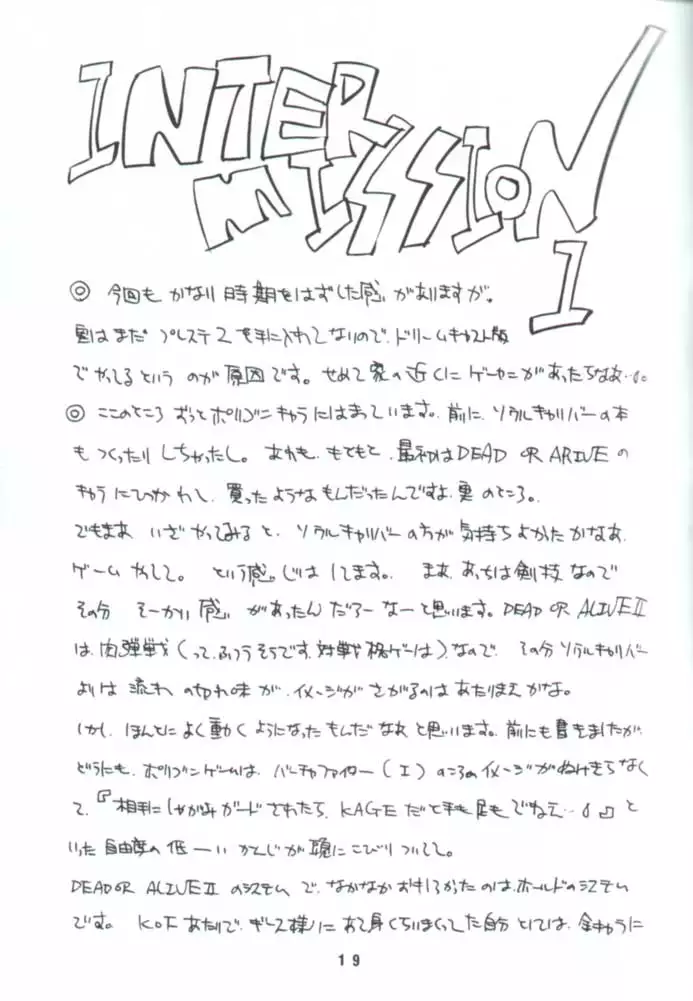 INTER
MISSION
I
◎ 今回も かなり 時期をはずした感が ありますが。
実はまだ プレステ2を手に入れてないので、ドリームキャスト版
でやってるという のが 原因です。せめて家の近くに ゲーセンがあったらなあ…。
◎ ここのところ ずっと ポリゴンキャラにはまっています。前に、ソウルキャリバーの本
も つくったり しちゃったし。あれも、もともと、最初は DEAD OR ARIVE の
キャラ にひっかかし、買ったようなもんだったんですよ、実のところ。
でもまあ いざ やってみると、ソウルキャリバーの方が 気持ちよかったかなあ、
ゲームやって。 という感じは してます。 まあ、あっちは剣技なので
その分 そーかい感が あったんだろーなーと思います。DEAD OR ALIVE II
は、肉弾戦(って、ふつうそうです、対戦格ゲーは)、なので、その分ソウルキャリバー
よりは 流れの切れ味が、イメージが さがるのは あたりまえかな。
しかし、ほんとに よく動くようになったもんだなあ と思います。前にも書きましたが、
どうにも、ポリゴンゲームは、バーチャファイター(I)のころのイメージがぬけきらなく
て、『相手にしゃがみガードされたら、KAGEだと手も足もでねえ…』と
いった 自由度の 低ーい かんじが 頭に こびりついてて。
DEAD OR ALIVE II のシステム で、なかなか おもしろかったのは、ホールドのシステム
です。 KOFあたりで、ギース様に あて身くらいまくってた自分としては、全キャラに
19